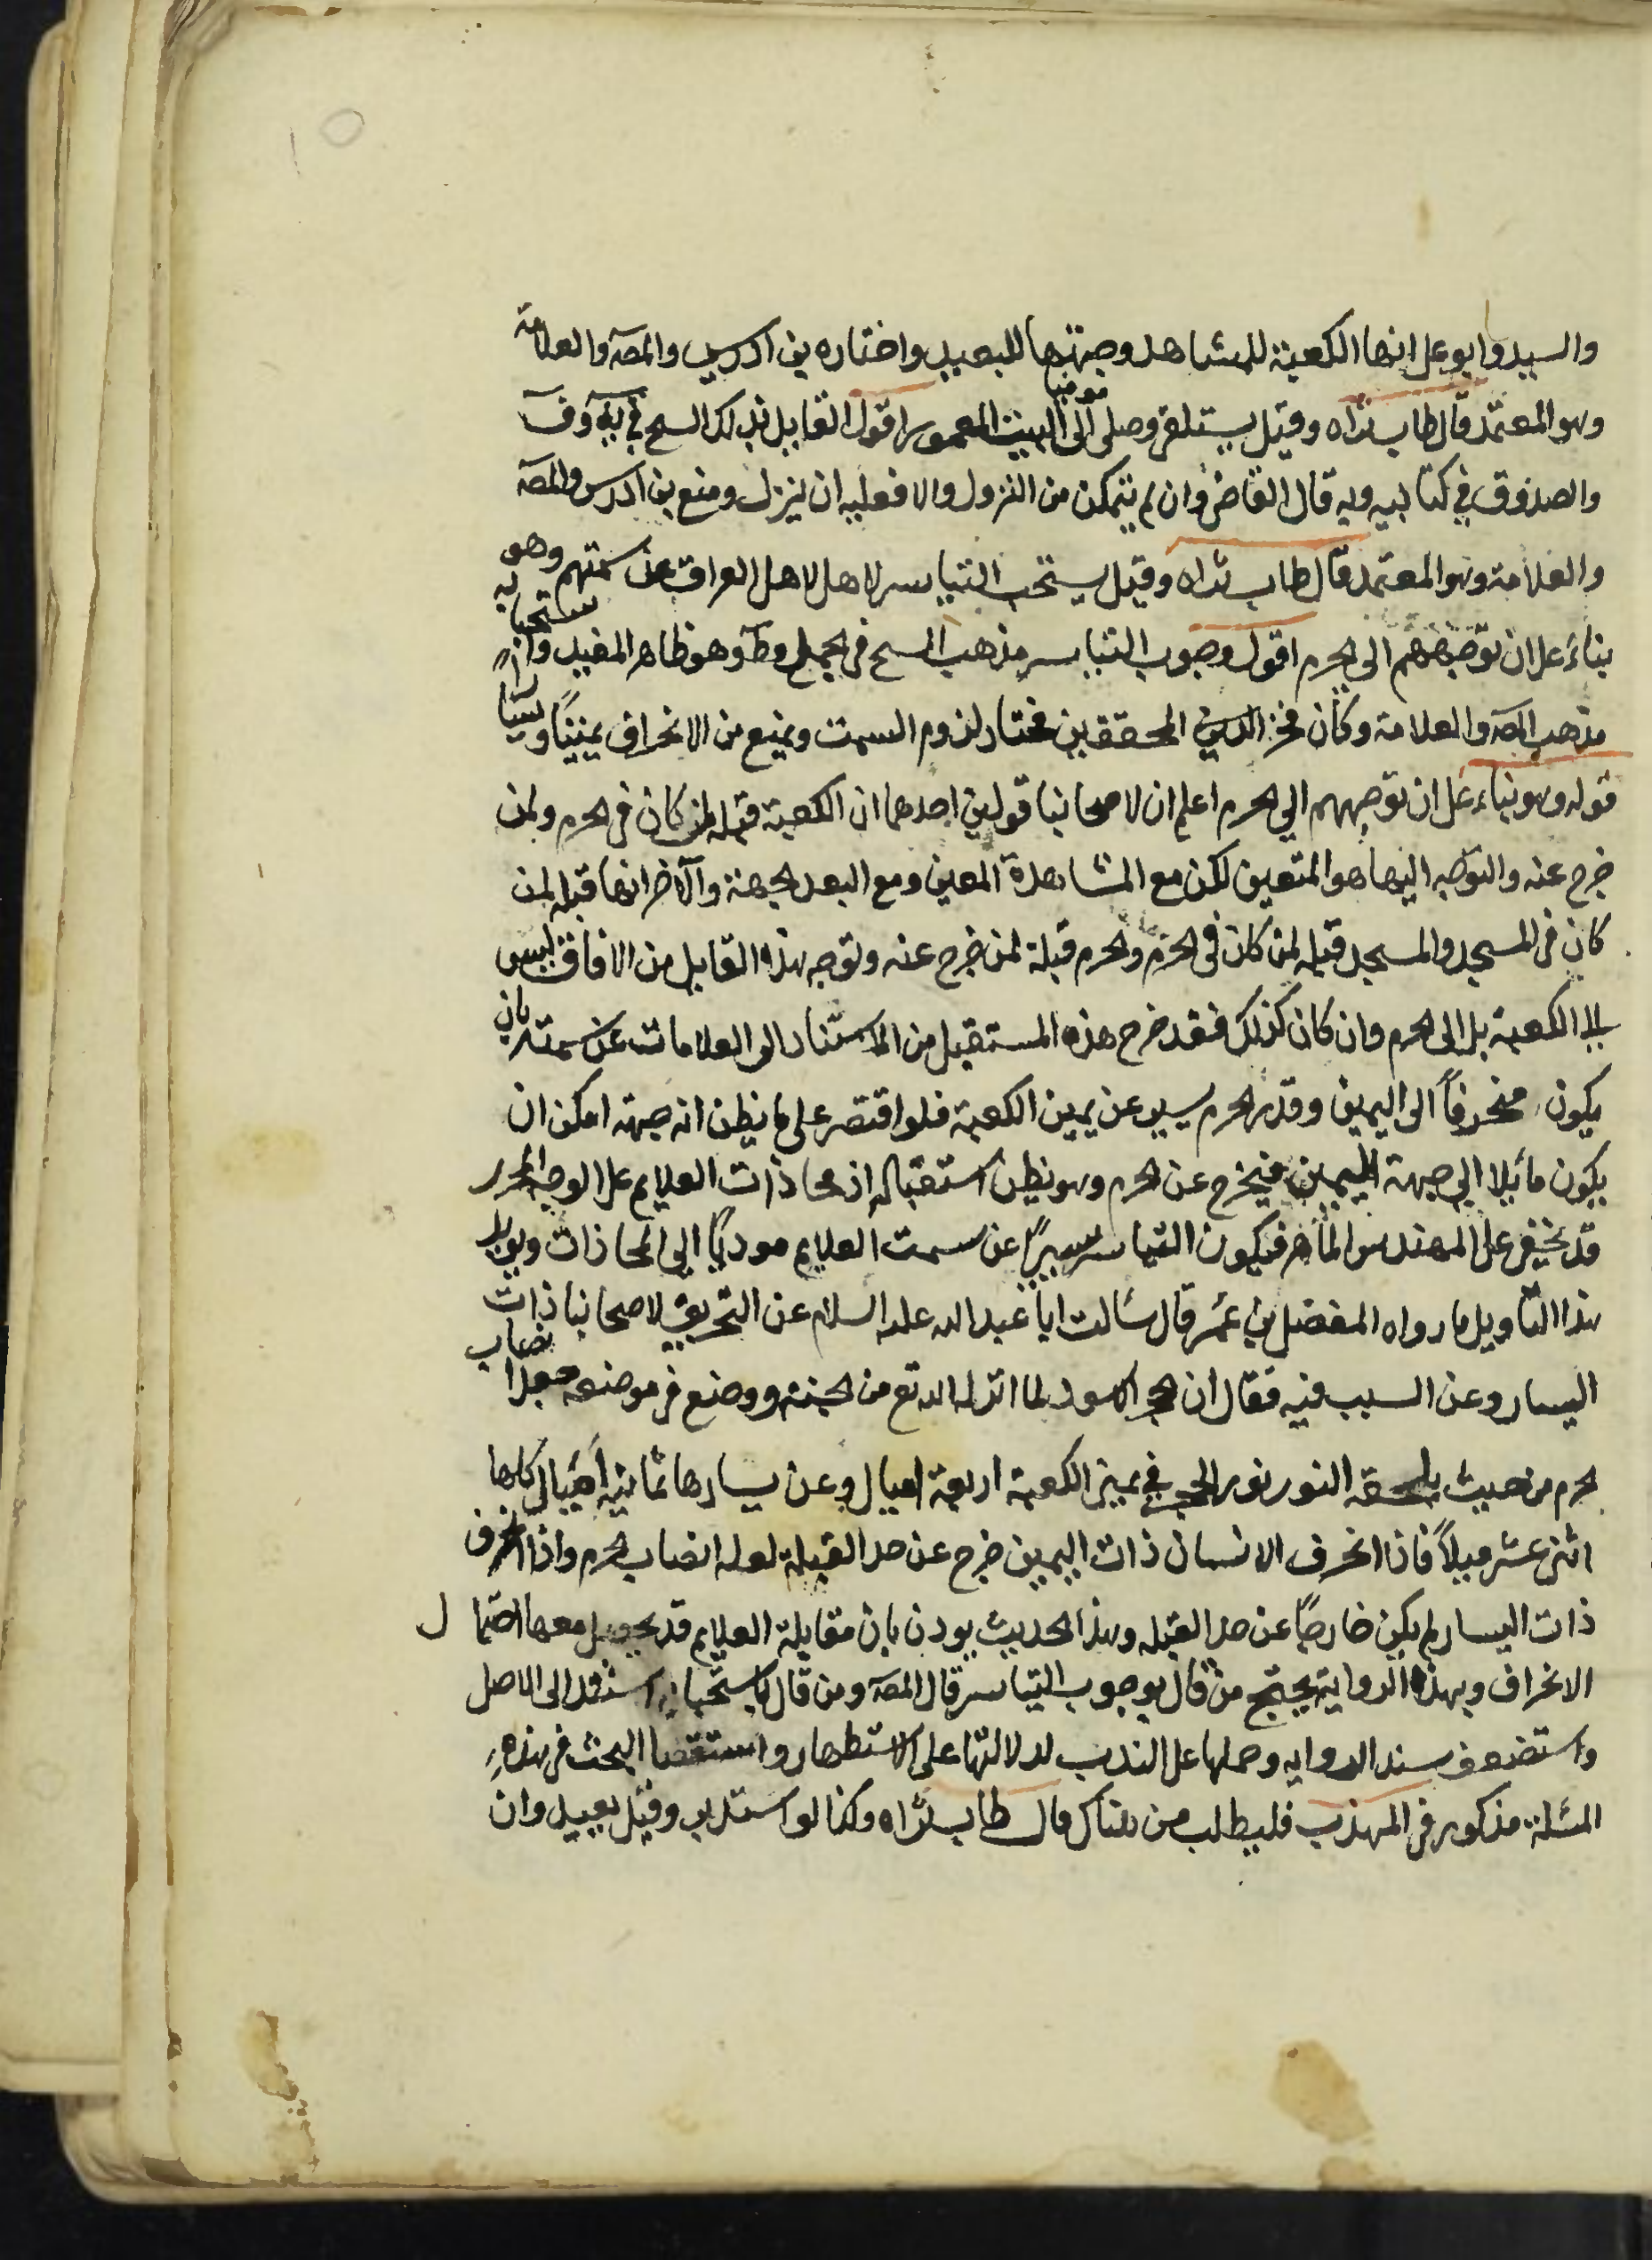 والسيد وابو على انها الكعبة للمشاهد وجهتها للبعيد واختاره بن ادريس والمصَ والعلامة
وهو المعتمد قال طاب ثراه وقيل يستلقى وصلى موميا الى البيت المعمور اقول القايل بذلك الشيخ في يَه وفَ
والصدوق في كتابيه وبه قال القاضى وان لم يتمكن من النزول والا فعليه ان ينزل ومنع بن ادريس والمصَ
والعلامة وهو المعتمد قال طاب ثراه وقيل يستحب التياسر لاهل لاهل العراق عن سمتهم وهو
بناءً على ان توجههم الى الحرم اقول وجوب التياسر مذهب الشيخ فى الجمل وطَ وهو ظاهر المفيد واستحبابه
مذهب المصَ والعلامة وكان فخر الدين المحققين يختار لزوم السمت ويمنع من الانحراف يمينًا ويسارا
قوله وهو بناء على ان توجههم الى الحرم اعلم ان لاصحابنا قولين احدهما ان الكعبة قبلة لمن كان فى الحرم ولمن
خرج عنه والتوجه اليها هو المتعين لكن مع المشاهدة المعين ومع البعد الجهة والآخر انها قبلة لمن
كان فى المسجد والمسجد قبلة لمن كان فى الحرم والحرم قبلة لمن خرج عنه وتوجه هذا القايل من الافاق ليس
الى الكعبة بل الى الحرم وان كان كذلك فقد خرج هذه المستقبل من الاستناد الى العلامات عن سمته بان
يكون منحرفاً الى اليمين وقدر الحرم يسير عن يمين الكعبة فلو اقتصر على ما يظن انه جهته امكن ان
يكون مائلا الى جهة اليمين فيخرج عن الحرم وهو يظن استقباله اذ محاذات العلايم على الوجه المحرر
قد يخفى على المهندس الماهر فيكون التياسر يسيرًا عن سمت العلايم موديًا الى المحاذات ويويد
هذا التاويل ما رواه المفضل بن عمر قال سالت ابا عبد الله عليه السلام عن التحريف لاصحابنا ذات
اليسار وعن السبب فيه فقال ان الحجر الاسود لما انزله الله تع من الجنة ووضع فى موضعه جعل انصاب
الحرم من حيث يلحقه النور نور الحجر فهى يمين الكعبة اربعة اميال وعن يسارها ثمانية اميال كلها
اثنى عشر ميلاً فاذا انحرف الانسان ذات اليمين خرج عن حد القبلة لعله انصاب الحرم واذا انحرف
ذات اليسار لم يكن خارجًا عن حد القبلة وهذا الحديث يوذن بان مقابلة العلايم قد يحصل معها احتمال
الانحراف وبهذه الرواية يحتج من قال بوجوب التياسر قال المصَ ومن قال باستحبابه استند الى الاصل
واستضعف سند الروايه وحملها على الندب لدلالتها على الاستظهار واستقصا البحث فى هذه
المسئلة مذكور فى المهذب فليطلب من هناك قال طاب ثراه وكذا لو استدبر وقيل يعيد وان